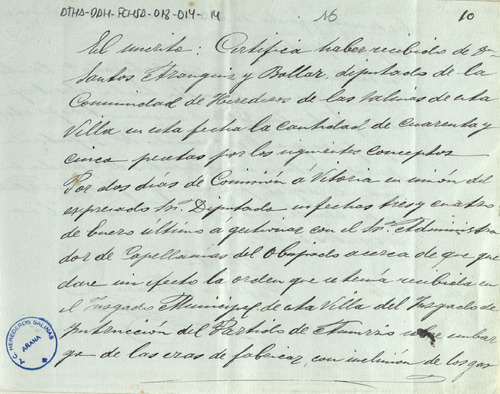 ATHA-DAH-FCHSA-018-014-14
16
10
El suscrito: Certifica haber recibido de Dn
Santos Aranguiz y Bollar, diputado de la
Comunidad de Herederos de las salinas de esta
Villa en esta fecha la cantidad de cuarenta y
cinco pesetas por los siguientes conceptos
Por dos días de Comisión á Vitoria en unión del
expresado Sr. Diputado en fechas tres y cuatro
de Enero ultimo á gestionar con el Sr. Administra
dor de Capellanias del Obispado acerca de que que
dare sin efecto la orden que se tenia recibida en
el Juzgado Municipal de esta Villa del Juzgado de
Instrucción del Partido de Amurrio sobre embar
go de las eras de fabricar, con inclusión de los gas
C. HEREDEROS SALINAS
ARANA